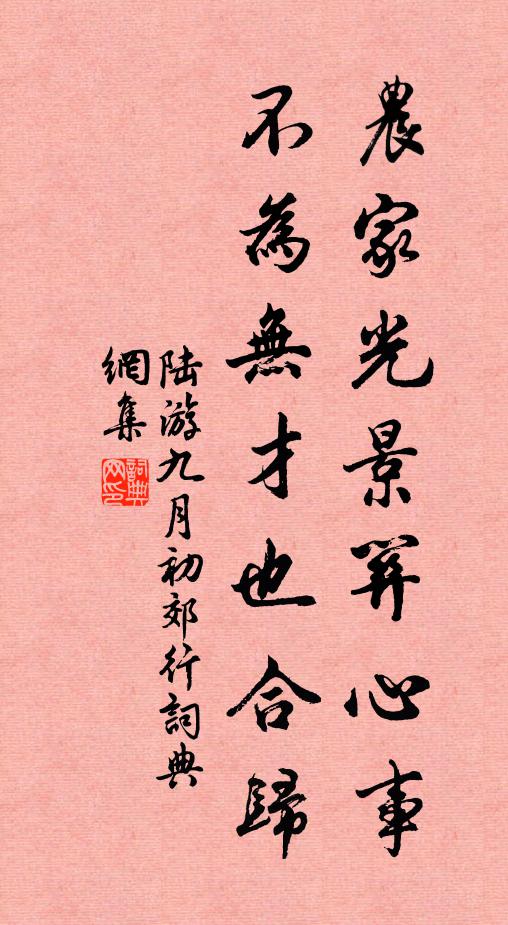 農家光景關心事
不為無才也合歸
陸游九月初郊行詞典
網集
詞典
网印